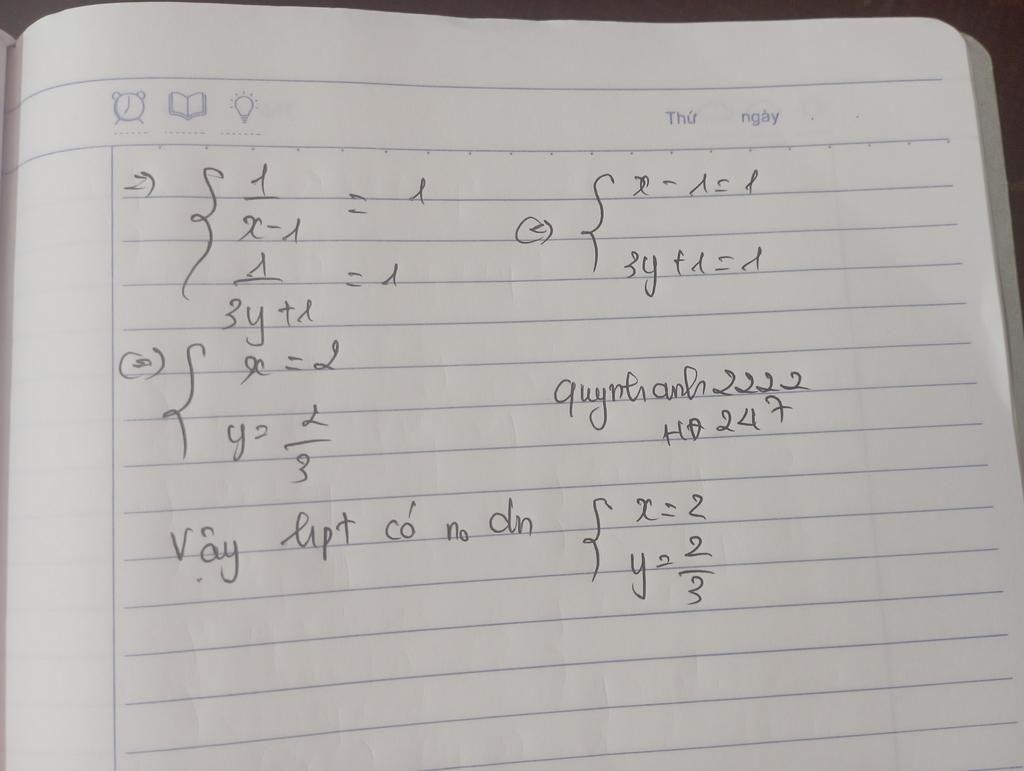 Thứ ngày
=) { 1/(x-1) = 1 (=) { x - 1 = 1
1/(3y+1) = 1 3y + 1 = 1
(=) { x = 2
y = 2/3
quynhanh2222
HĐ 247
Vậy hpt có no dn { x = 2
y = 2/3